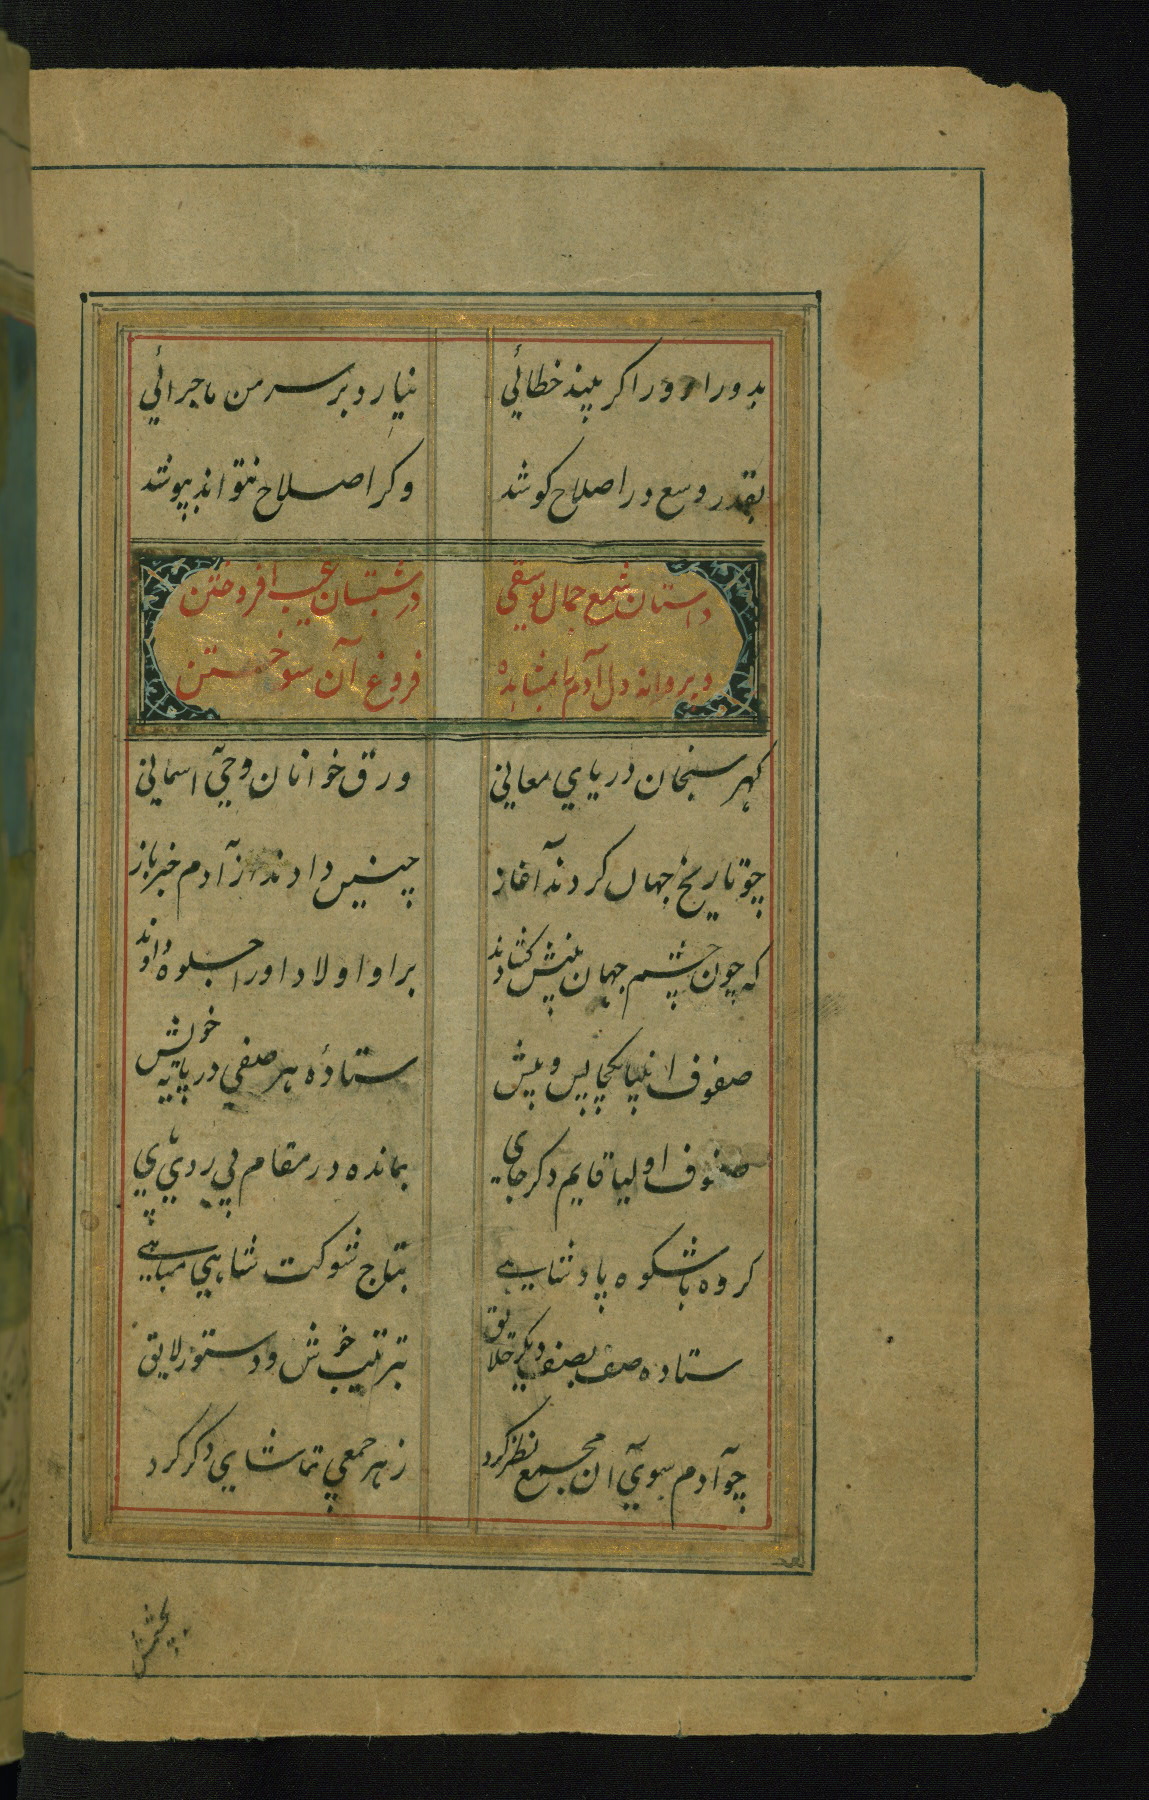 بدور ار ور اکر بیند خطائي نیارد بر سر من ماجرائي
بقدر وسع در اصلاح کوشد وکر اصلاح نتواند بپوشد
داستان شمع جمال یوسفي در شبستان غیب افروختن
و پروانه دل آدم را بمشاهده فروغ آن سوختن
کهر سنجان دریاي معاني ورق خوانان وحي آسماني
چو تاریخ جهان کردند آغاز چنین دادند از آدم خبر باز
که چون چشم جهان بینش کشادند بر او اولاد او را جلوه دادند
صفوف انبیا یکجا پس و پیش ستاده هر صفي در پایه خویش
صفوف اولیا قایم دکر جاي بمانده در مقام پي روي پاي
کروه با شکوه پادشاهي بتاج شوکت شاهي مباهي
ستاده صف بصف دیکر خلایق بترتیب خوش و دستور لایق
چو آدم سوي آن مجمع نظر کرد ز هر جمعي تماشاي دکر کرد
بچشمش